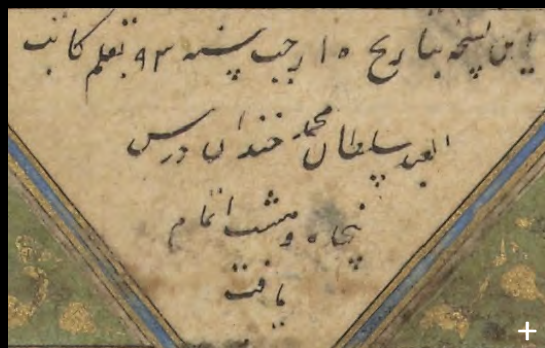 این نسخه بتاریخ ۱۵ رجب سنه ۹۳ بقلم کاتب
العبد سلطان محمد خندان در سن
پنجاه و هشت اتمام
یافت